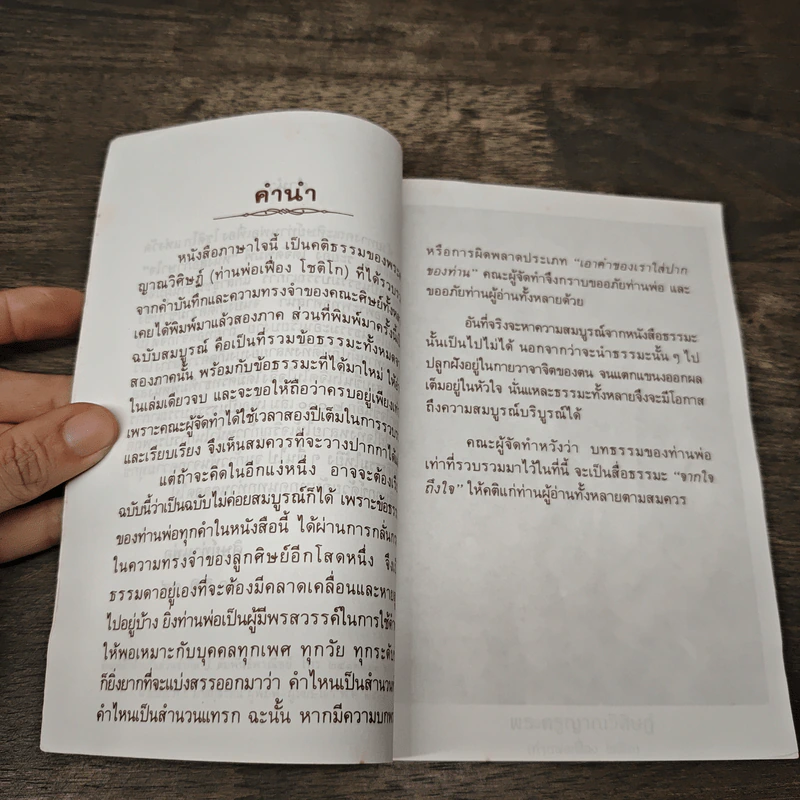 คำนำ
หนังสือภาษาใจนี้ เป็นคติธรรมของพระ
ญาณวิศิษฏ์ (ท่านพ่อเฟื่อง โชติโก) ที่ได้รวบร
จากคำบันทึกและความทรงจำของคณะศิษย์ทั้งหล
เคยได้พิมพ์มาแล้วสองภาค ส่วนที่พิมพ์มาครั้งนี้
ฉบับสมบูรณ์ คือเป็นที่รวมข้อธรรมะทั้งหมด
สองภาคนั้น พร้อมกับข้อธรรมะที่ได้มาใหม่ ให้
ในเล่มเดียวจบ และจะขอให้ถือว่าครบอยู่เพียง
เพราะคณะผู้จัดทำได้ใช้เวลาสองปีเต็มในการรวบ
และเรียบเรียง จึงเห็นสมควรที่จะวางปากกาได้
แต่ถ้าจะคิดในอีกแง่หนึ่ง อาจจะต้อง
ฉบับนี้ว่าเป็นฉบับไม่ค่อยสมบูรณ์ก็ได้ เพราะข้อธรร
ของท่านพ่อทุกคำในหนังสือนี้ ได้ผ่านการกลั่น
ในความทรงจำของลูกศิษย์อีกโสดหนึ่ง จึง
ธรรมดาอยู่เองที่จะต้องมีคลาดเคลื่อนและหาย
ไปอยู่บ้าง ยิ่งท่านพ่อเป็นผู้มีพรสวรรค์ในการใช้
ให้พอเหมาะกับบุคคลทุกเพศ ทุกวัย ทุกระดับ
ก็ยิ่งยากที่จะแบ่งสรรออกมาว่า คำไหนเป็นสำนวน
คำไหนเป็นสำนวนแทรก ฉะนั้น หากมีความบกพ
หรือการผิดพลาดประเภท “เอาคำของเราใส่ปาก
ของท่าน” คณะผู้จัดทำจึงกราบขออภัยท่านพ่อ และ
ขออภัยท่านผู้อ่านทั้งหลายด้วย
อันที่จริงจะหาความสมบูรณ์จากหนังสือธรรมะ
นั้นเป็นไปไม่ได้ นอกจากว่าจะนำธรรมะนั้น ๆ ไป
ปลูกฝังอยู่ในกายวาจาจิตของตน จนแตกแขนงออกผล
เต็มอยู่ในหัวใจ นั่นแหละธรรมะทั้งหลายจึงจะมีโอกาส
ถึงความสมบูรณ์บริบูรณ์ได้
คณะผู้จัดทำหวังว่า บทธรรมของท่านพ่อ
เท่าที่รวบรวมมาไว้ในที่นี้ จะเป็นสื่อธรรมะ “จากใจ
ถึงใจ” ให้คติแก่ท่านผู้อ่านทั้งหลายตามสมควร